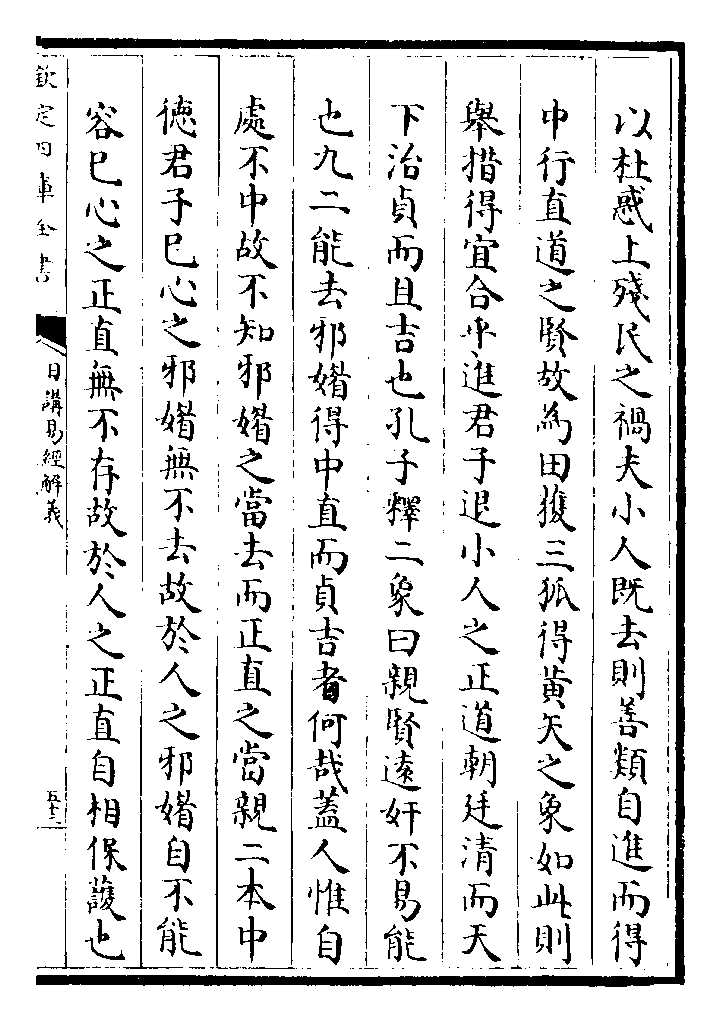 以杜惑上殘民之禍夫小人既去則善類自進而得
中行直道之賢故為田獲三狐得黄矢之象如此則
舉措得宜合乎進君子退小人之正道朝廷清而天
下治貞而且吉也孔子釋二象曰親賢遠奸不易能
也九二能去邪媚得中直而貞吉者何哉蓋人惟自
處不中故不知邪媚之當去而正直之當親二本中
徳君子已心之邪媚無不去故於人之邪媚自不能
容已心之正直無不存故於人之正直自相保護也
欽定四庫全書
日講易經解義
五十三